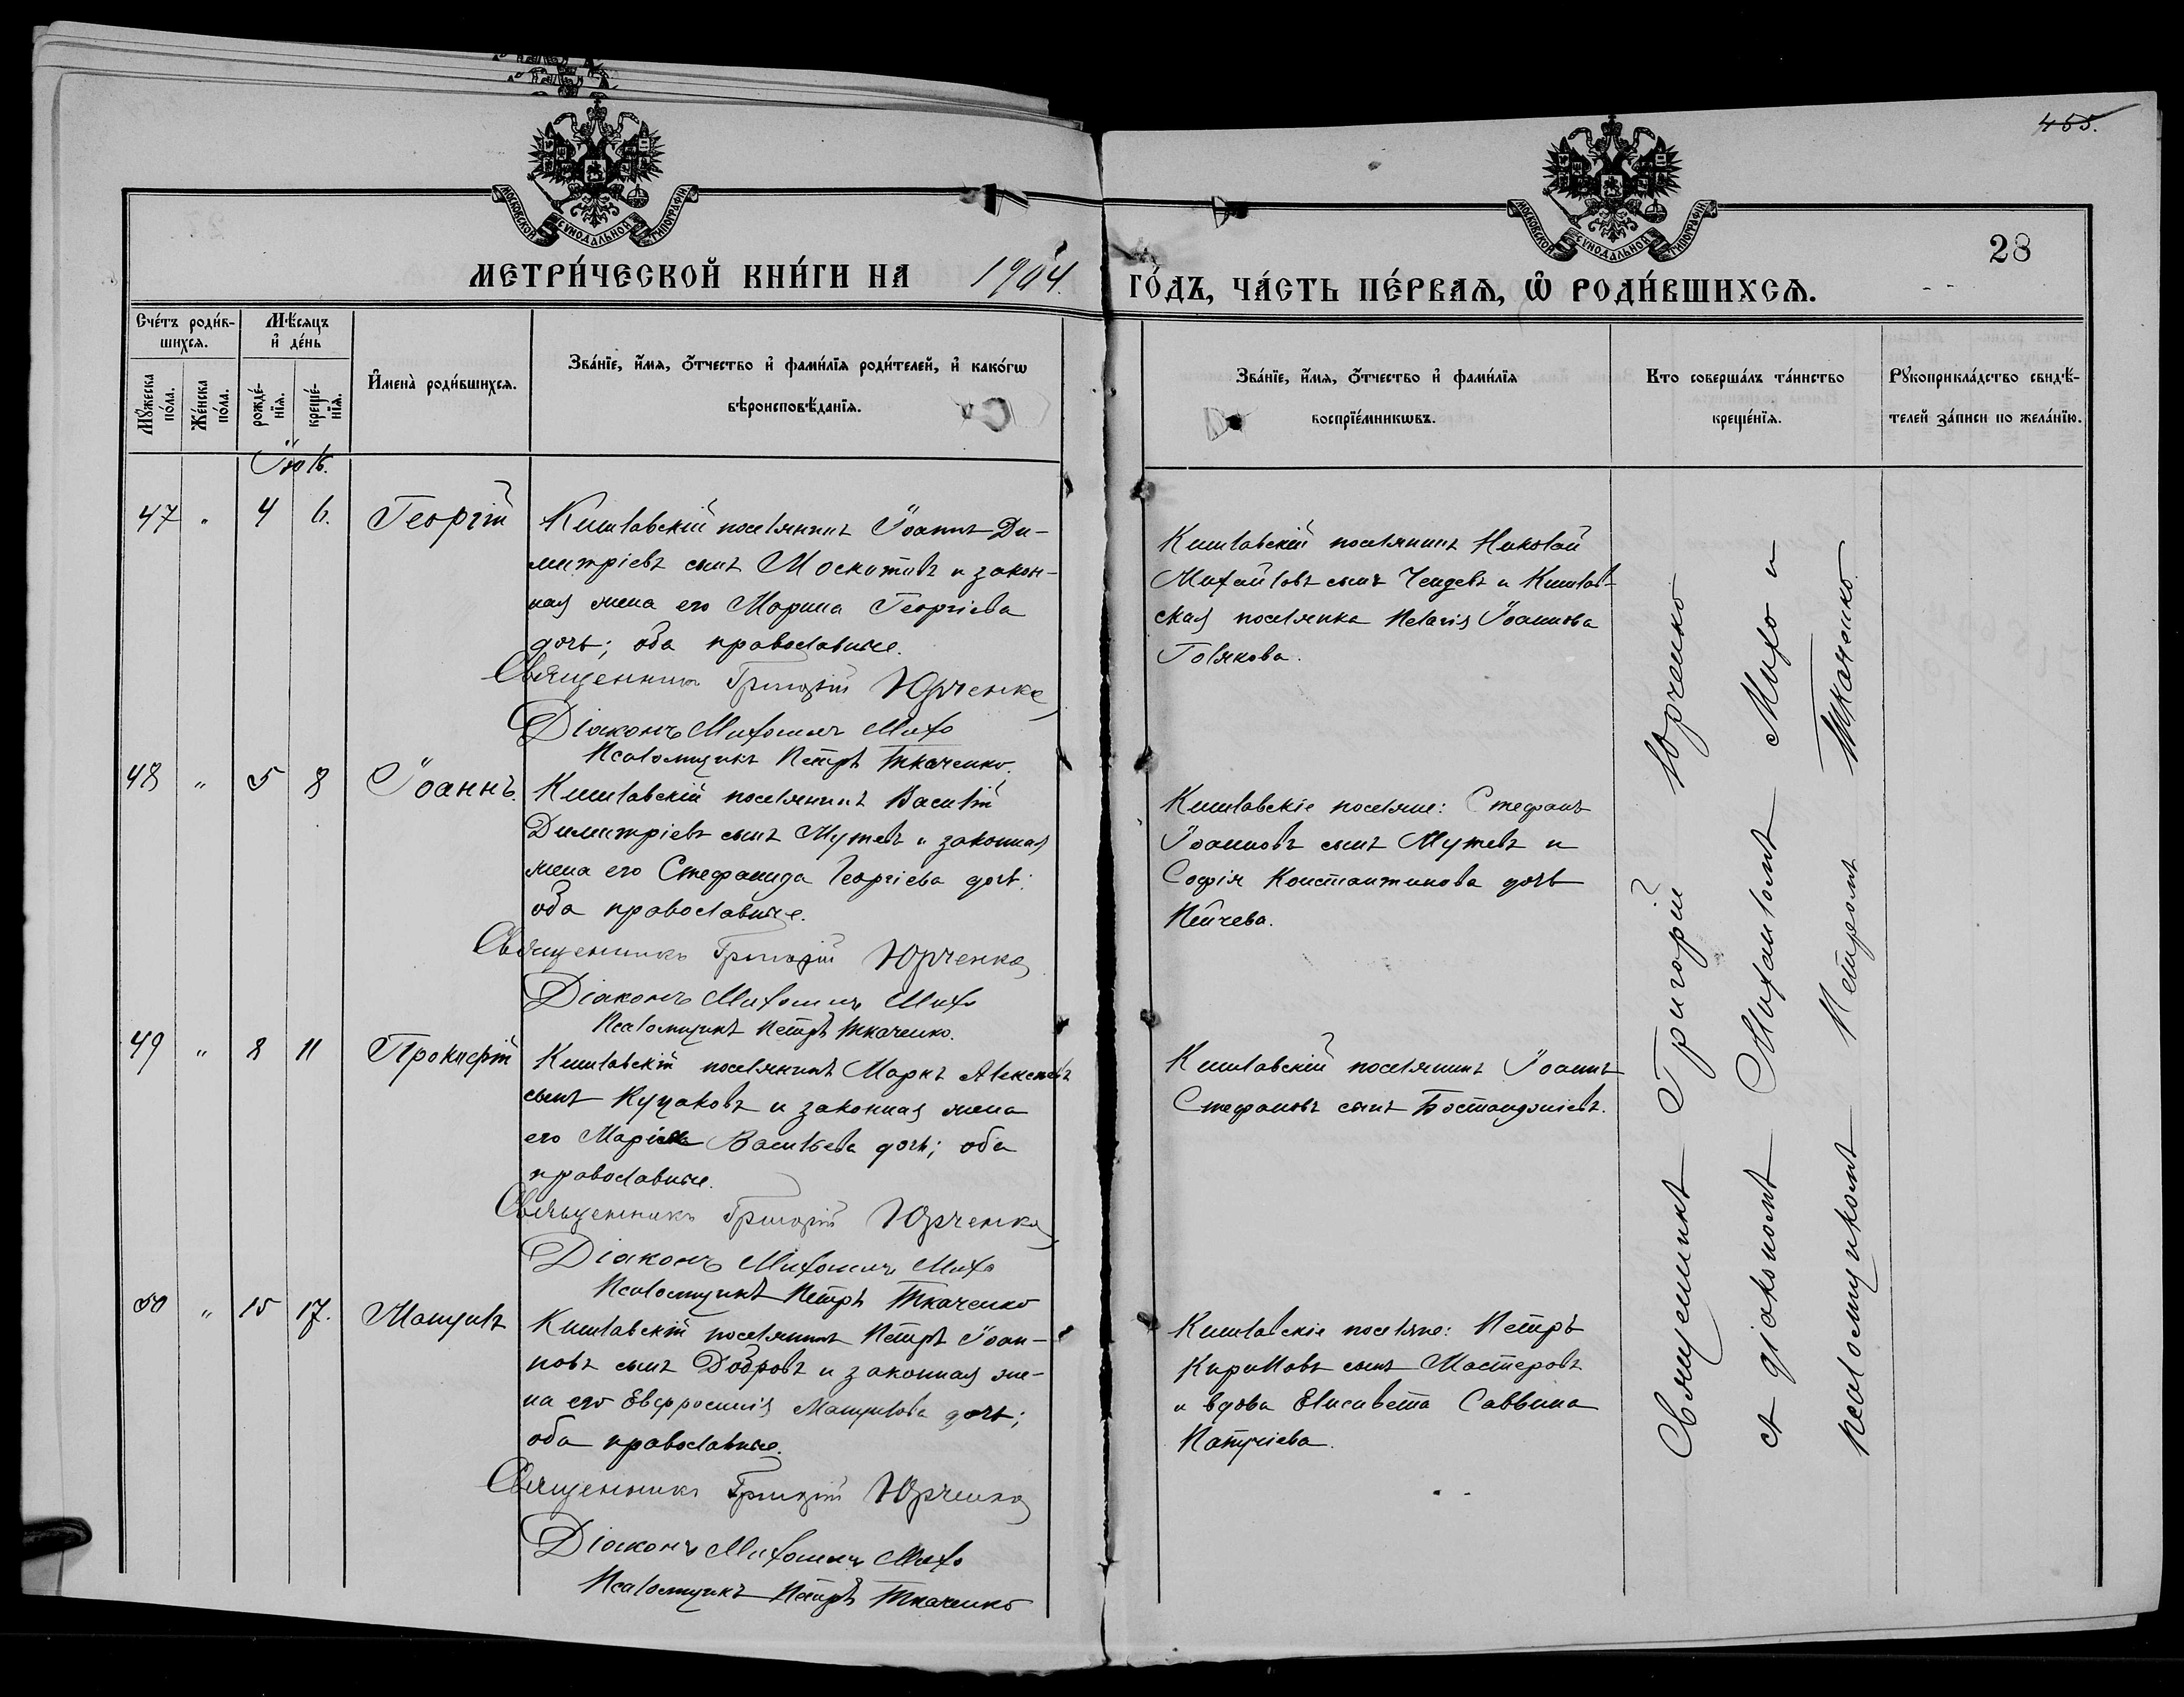 455.
МОСКОВСКОЙ СѴНОДАЛЬНОЙ ТИПОГРАФІИ
МОСКОВСКОЙ СѴНОДАЛЬНОЙ ТИПОГРАФІИ
28
МЕТРИ́ЧЕСКОЙ КНИ́ГИ НА 1904. ГО́ДЪ, ЧА́СТЬ ПЕ́РВАЯ, Ѡ҆ РОДИ́ВШИХСЯ.
Сче́тъ роди́в-
шихся.
Мꙋ́жеска по́ла.
Же́нска по́ла.
Мѣ́сяцъ
и҆ де́нь
рожде́-
нїя.
креще́-
нїя.
И҆мена̀ роди́вшихся.
Зва́нїе, и҆́мя, ѻ҆́тчество и҆ фами́лїя роди́телей, и҆ како́гѡ
вѣроисповѣ́данїя.
Зва́нїе, и҆́мя, ѻ҆́тчество и҆ фами́лїя
воспрїе́мникѡвъ.
Кто соверша́лъ та́инство
креще́нїя.
Рꙋкоприкла́дство свидѣ́-
телей за́писи по жела́нїю.
Іюль.
47 " 4 6. Георгій
Кишлавскій поселянинъ Іоаннъ Ди-
митріевъ сынъ и закон-
ная жена его Марина Георгіева
дочь; оба православные.
Священникъ Григорій Юрченко
Діаконъ Михаилъ Михо
Псаломщикъ Петръ Ткаченко.
Кишлавскій поселянинъ Николай
Михайловъ сынъ Чендевъ и Кишлав-
ская поселянка Пелагія Іоаннова
Голякова.
48 " 5 8 Іоаннъ.
Кишлавскій поселянинъ Василій
Димитріевъ сынъ Мутевъ и законная
жена его Стефанида Георгіева дочь;
оба православные.
Священникъ Григорій Юрченко
Діаконъ Михаилъ Михо
Псаломщикъ Петръ Ткаченко.
Кишлавскіе поселяне: Стефанъ
Іоанновъ сынъ Мутевъ и
Софія Константинова дочь
Пейчева.
49 " 8 11 Прокпій
Кишлавскій поселянинъ Маркъ Алексѣевъ
сынъ Куцаковъ и законная жена
его Марія Васильева дочь; оба
православные.
Священникъ Григорій Юрченко
Діаконъ Михаилъ Михо
Псаломщикъ Петръ Ткаченко
Кишлавскій поселянинъ Іоаннъ
Стефановъ сынъ Бостанджіевъ.
50 " 15 17. Мануилъ
Кишлавскій поселянинъ Петръ Іоан-
новъ сынъ Добровъ и законная же-
на его Евфросинія Мануилова дочь;
оба православные.
Священникъ Григорій Юрченко
Діаконъ Михаилъ Михо
Псаломщикъ Петръ Ткаченко
Кишлавскіе поселяне: Петръ
Кирилловъ сынъ Мастеровъ
и вдова Елисавета Саввина
Священникъ Григорій Юрченко
съ діакономъ Михаиломъ Михо и
псаломщикомъ Петромъ Ткаченко.